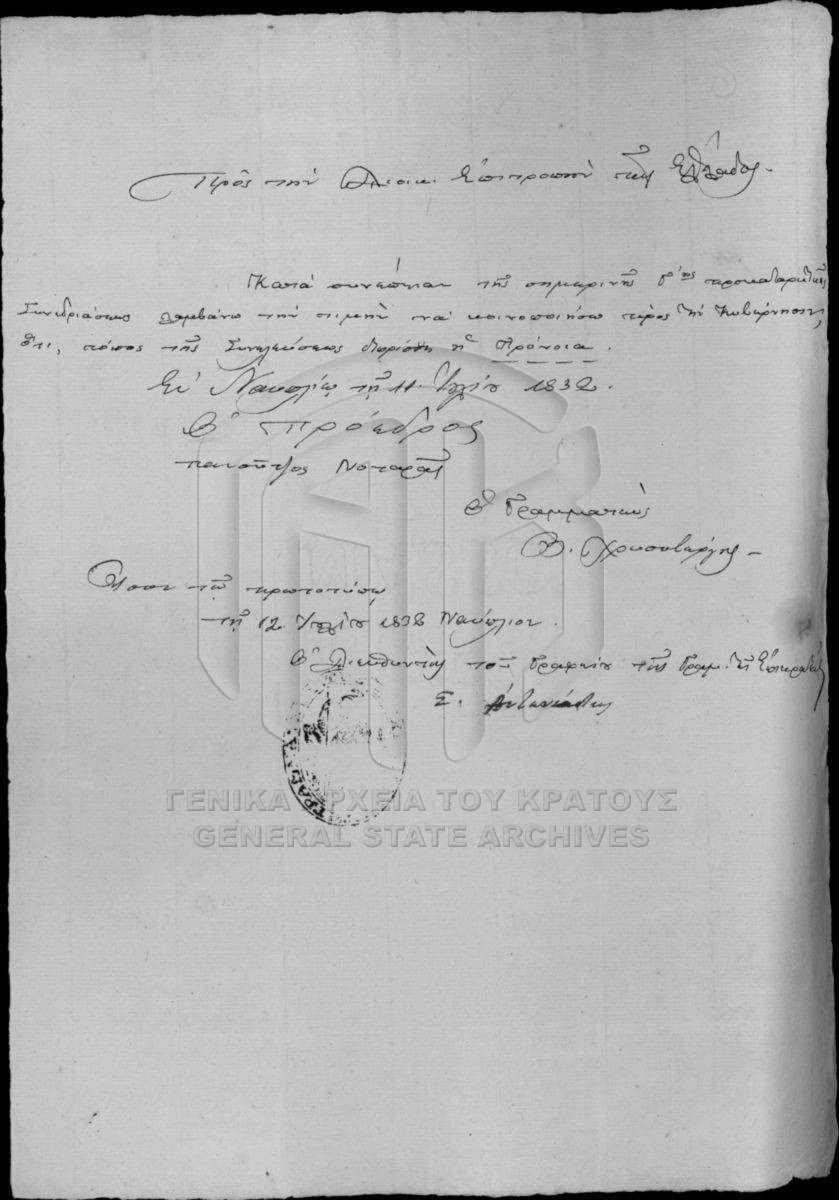 Πρὸς τὴν Διοικ. Ἐπιτροπὴν τῆς Ἑλλάδος.
Κατὰ συνέπειαν τῆς σημερινῆς γ΄ης προκαταρκτικῆς
Συνεδριάσεως λαμβάνω τὴν τιμὴν νὰ κοινοποιήσω πρὸς τὴν Κυβέρνησιν,
ὅτι, τόπος τῆς Συνελεύσεως διωρίσθη ἡ Πρόνοια.
Ἐν Ναυπλίῳ τῇ 11 Ἰουλίου 1832.
Ὁ Πρόεδρος
πανοῦτζος Νοταρᾶς
Ὁ Γραμματεὺς
Δ. Χρυσοβέργης
Ἴσον τῷ πρωτοτύπῳ
τῇ 12 Ἰουλίου 1832 Ναύπλιον.
Ὁ Διευθυντὴς τοῦ Γραφείου τῆς Γραμ. τῆς Ἐπικρατείας
Σ. Ἀντωνιάδης
ΓΡΑΜ
ΓΕΝΙΚΑ ΑΡΧΕΙΑ ΤΟΥ ΚΡΑΤΟΥΣ
GENERAL STATE ARCHIVES